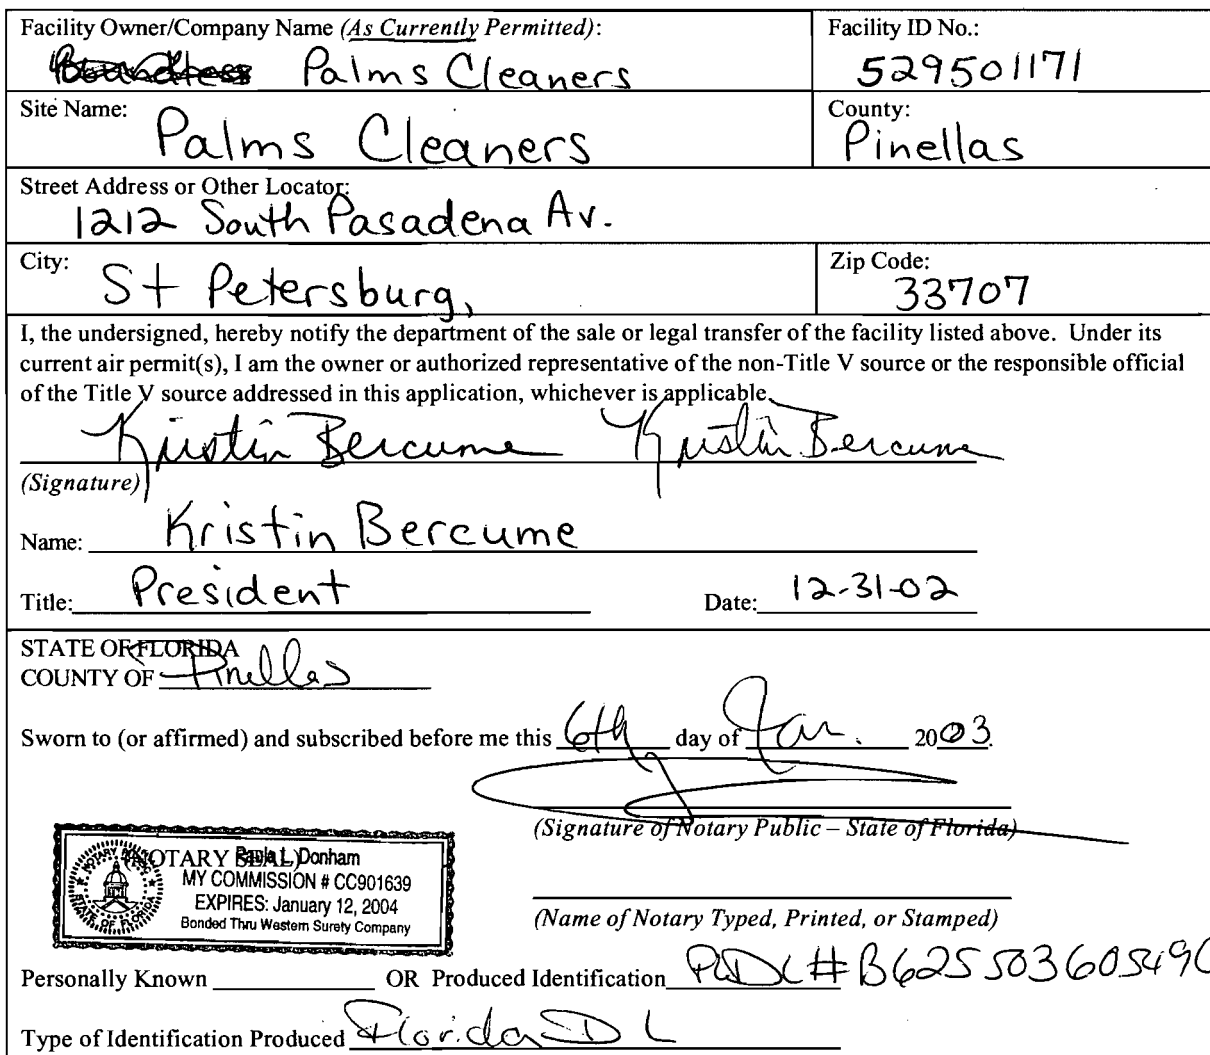 Facility Owner/Company Name (As Currently Permitted):
Palms Cleaners
Facility ID No.:
529501171
Site Name:
Palms Cleaners
County:
Pinellas
Street Address or Other Locator:
1212 South Pasadena Av.
City:
St Petersburg,
Zip Code:
33707
I, the undersigned, hereby notify the department of the sale or legal transfer of the facility listed above. Under its
current air permit(s), I am the owner or authorized representative of the non-Title V source or the responsible official
of the Title V source addressed in this application, whichever is applicable.
Kristin Bercume Kristin Bercume
(Signature)
Name: Kristin Bercume
Title: President Date: 12-31-02
STATE OF FLORIDA
COUNTY OF Pinellas
Sworn to (or affirmed) and subscribed before me this 6th day of Jan. 2003.
(Signature of Notary Public – State of Florida)
(NOTARY SEAL) Paula L. Donham
MY COMMISSION # CC901639
EXPIRES: January 12, 2004
Bonded Thru Western Surety Company
NOTARY PUBLIC
STATE OF FLORIDA
(Name of Notary Typed, Printed, or Stamped)
Personally Known OR Produced Identification
Type of Identification Produced Florida D L